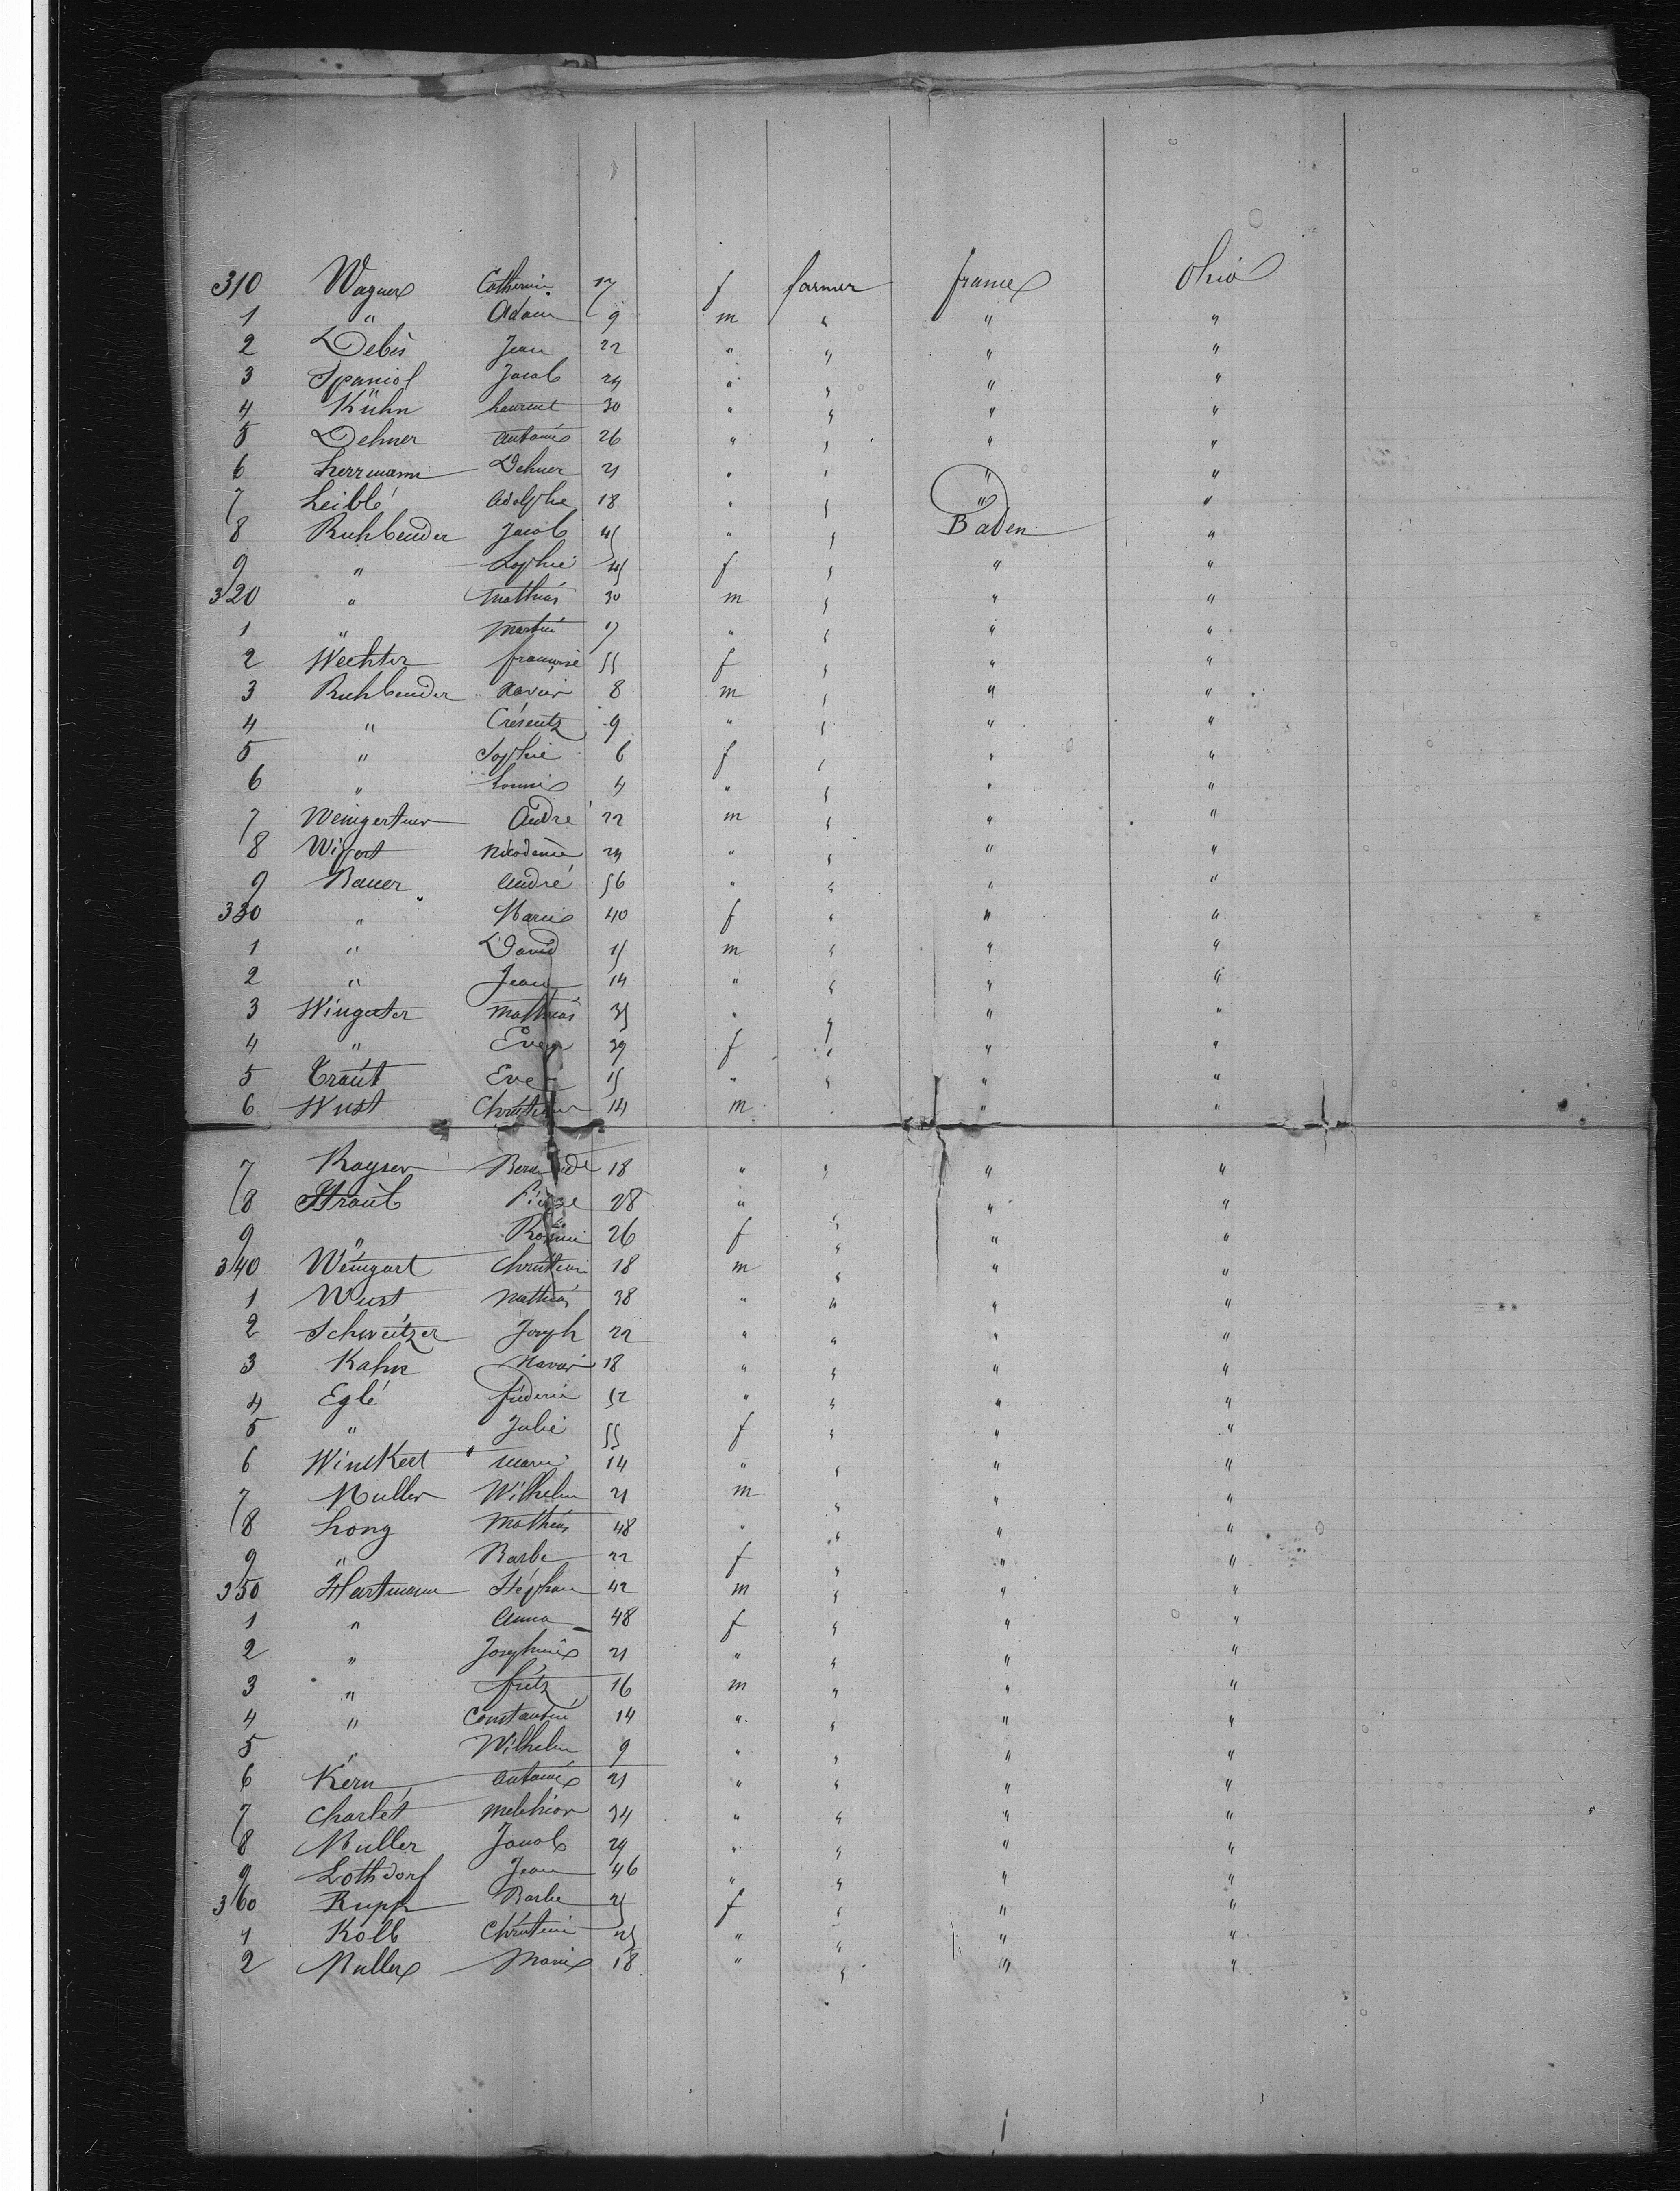 310 Wagner Catherine 17 f farmer france Ohio
1 " Adam 9 m " " "
2 Debes Jean 22 " " " "
3 Spaniol Jacob 24 " " " "
4 Kühn Laurent 30 " " " "
5 Dehner Antoine 26 " " " "
6 herrmann Dehner 21 " " " "
7 Leiblé Adolphe 18 " " " "
8 Ruhbender Jacob 45 " " Baden "
9 " Sophie 45 f " " "
320 " Mathias 30 m " " "
1 " Martin 17 " " " "
2 Wechter françoise 55 f " " "
3 Ruhbender Xavier 8 m " " "
4 " Crésentz 9 " " " "
5 " Sophie 6 f " " "
6 " Louise 4 " " " "
7 Weingertner André 22 m " " "
8 Nicodeme 24 " " " "
9 Bauer André 56 " " " "
330 " Marie 40 f " " "
1 " David 15 m " " "
2 " Jean 14 " " " "
3 Winguter Mathias 35 " " " "
4 " Eve 39 f " " "
5 Traut Eve 15 " " " "
6 Wust Christian 14 m " "
7 Kayser 18 " " " "
8 Straub Pierre 28 " " "
9 " Rosine 26 f " " "
340 Weingart Christian 18 m " " "
1 Wust Mathias 38 " " " "
2 Schweitzer Joseph 22 " " " "
3 Kahn Xavier 18 " " " "
4 Eglé fréderic 52 " " " "
5 " Julie 55 f " " "
6 Winkert Marie 14 " " " "
7 Muller Wilhelm 21 m " " "
8 Long Mathias 48 " " " "
9 " Barbe 22 f " " "
350 Hartmann Stéphan 42 m " " "
1 " Anna 48 f " " "
2 " Josephine 21 " " " "
3 " fritz 16 m " " "
4 " Constantin 14 " " " "
5 " Wilhelm 9 " " " "
6 Kern Antoine 21 " " " "
7 Charlet Melchior 34 " " " "
8 Muller Jacob 29 " " " "
9 Lothdorf Jean 46 " " " "
360 Rupp Barbe 25 f " " "
1 Kolb Christine 25 " " " "
2 Muller Marie 18 " " " "